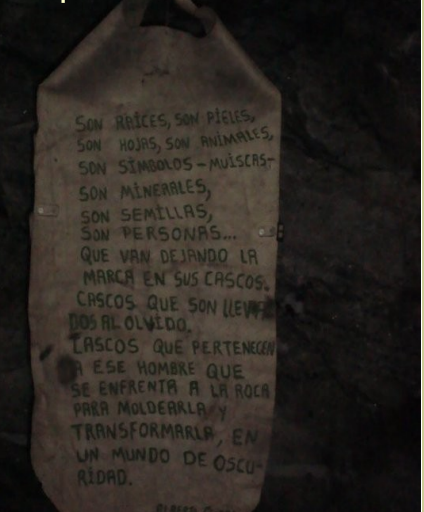 SON RAÍCES, SON PIELES,
SON HOJAS, SON ANIMALES,
SON SÍMBOLOS - MUISCAS-
SON MINERALES,
SON SEMILLAS,
SON PERSONAS...
QUE VAN DEJANDO LA
MARCA EN SUS CASCOS.
CASCOS QUE SON LLEVA
DOS AL OLVIDO.
CASCOS QUE PERTENECEN
A ESE HOMBRE QUE
SE ENFRENTA A LA ROCA
PARA MOLDEARLA Y
TRANSFORMARLA, EN
UN MUNDO DE OSCU-
RIDAD.